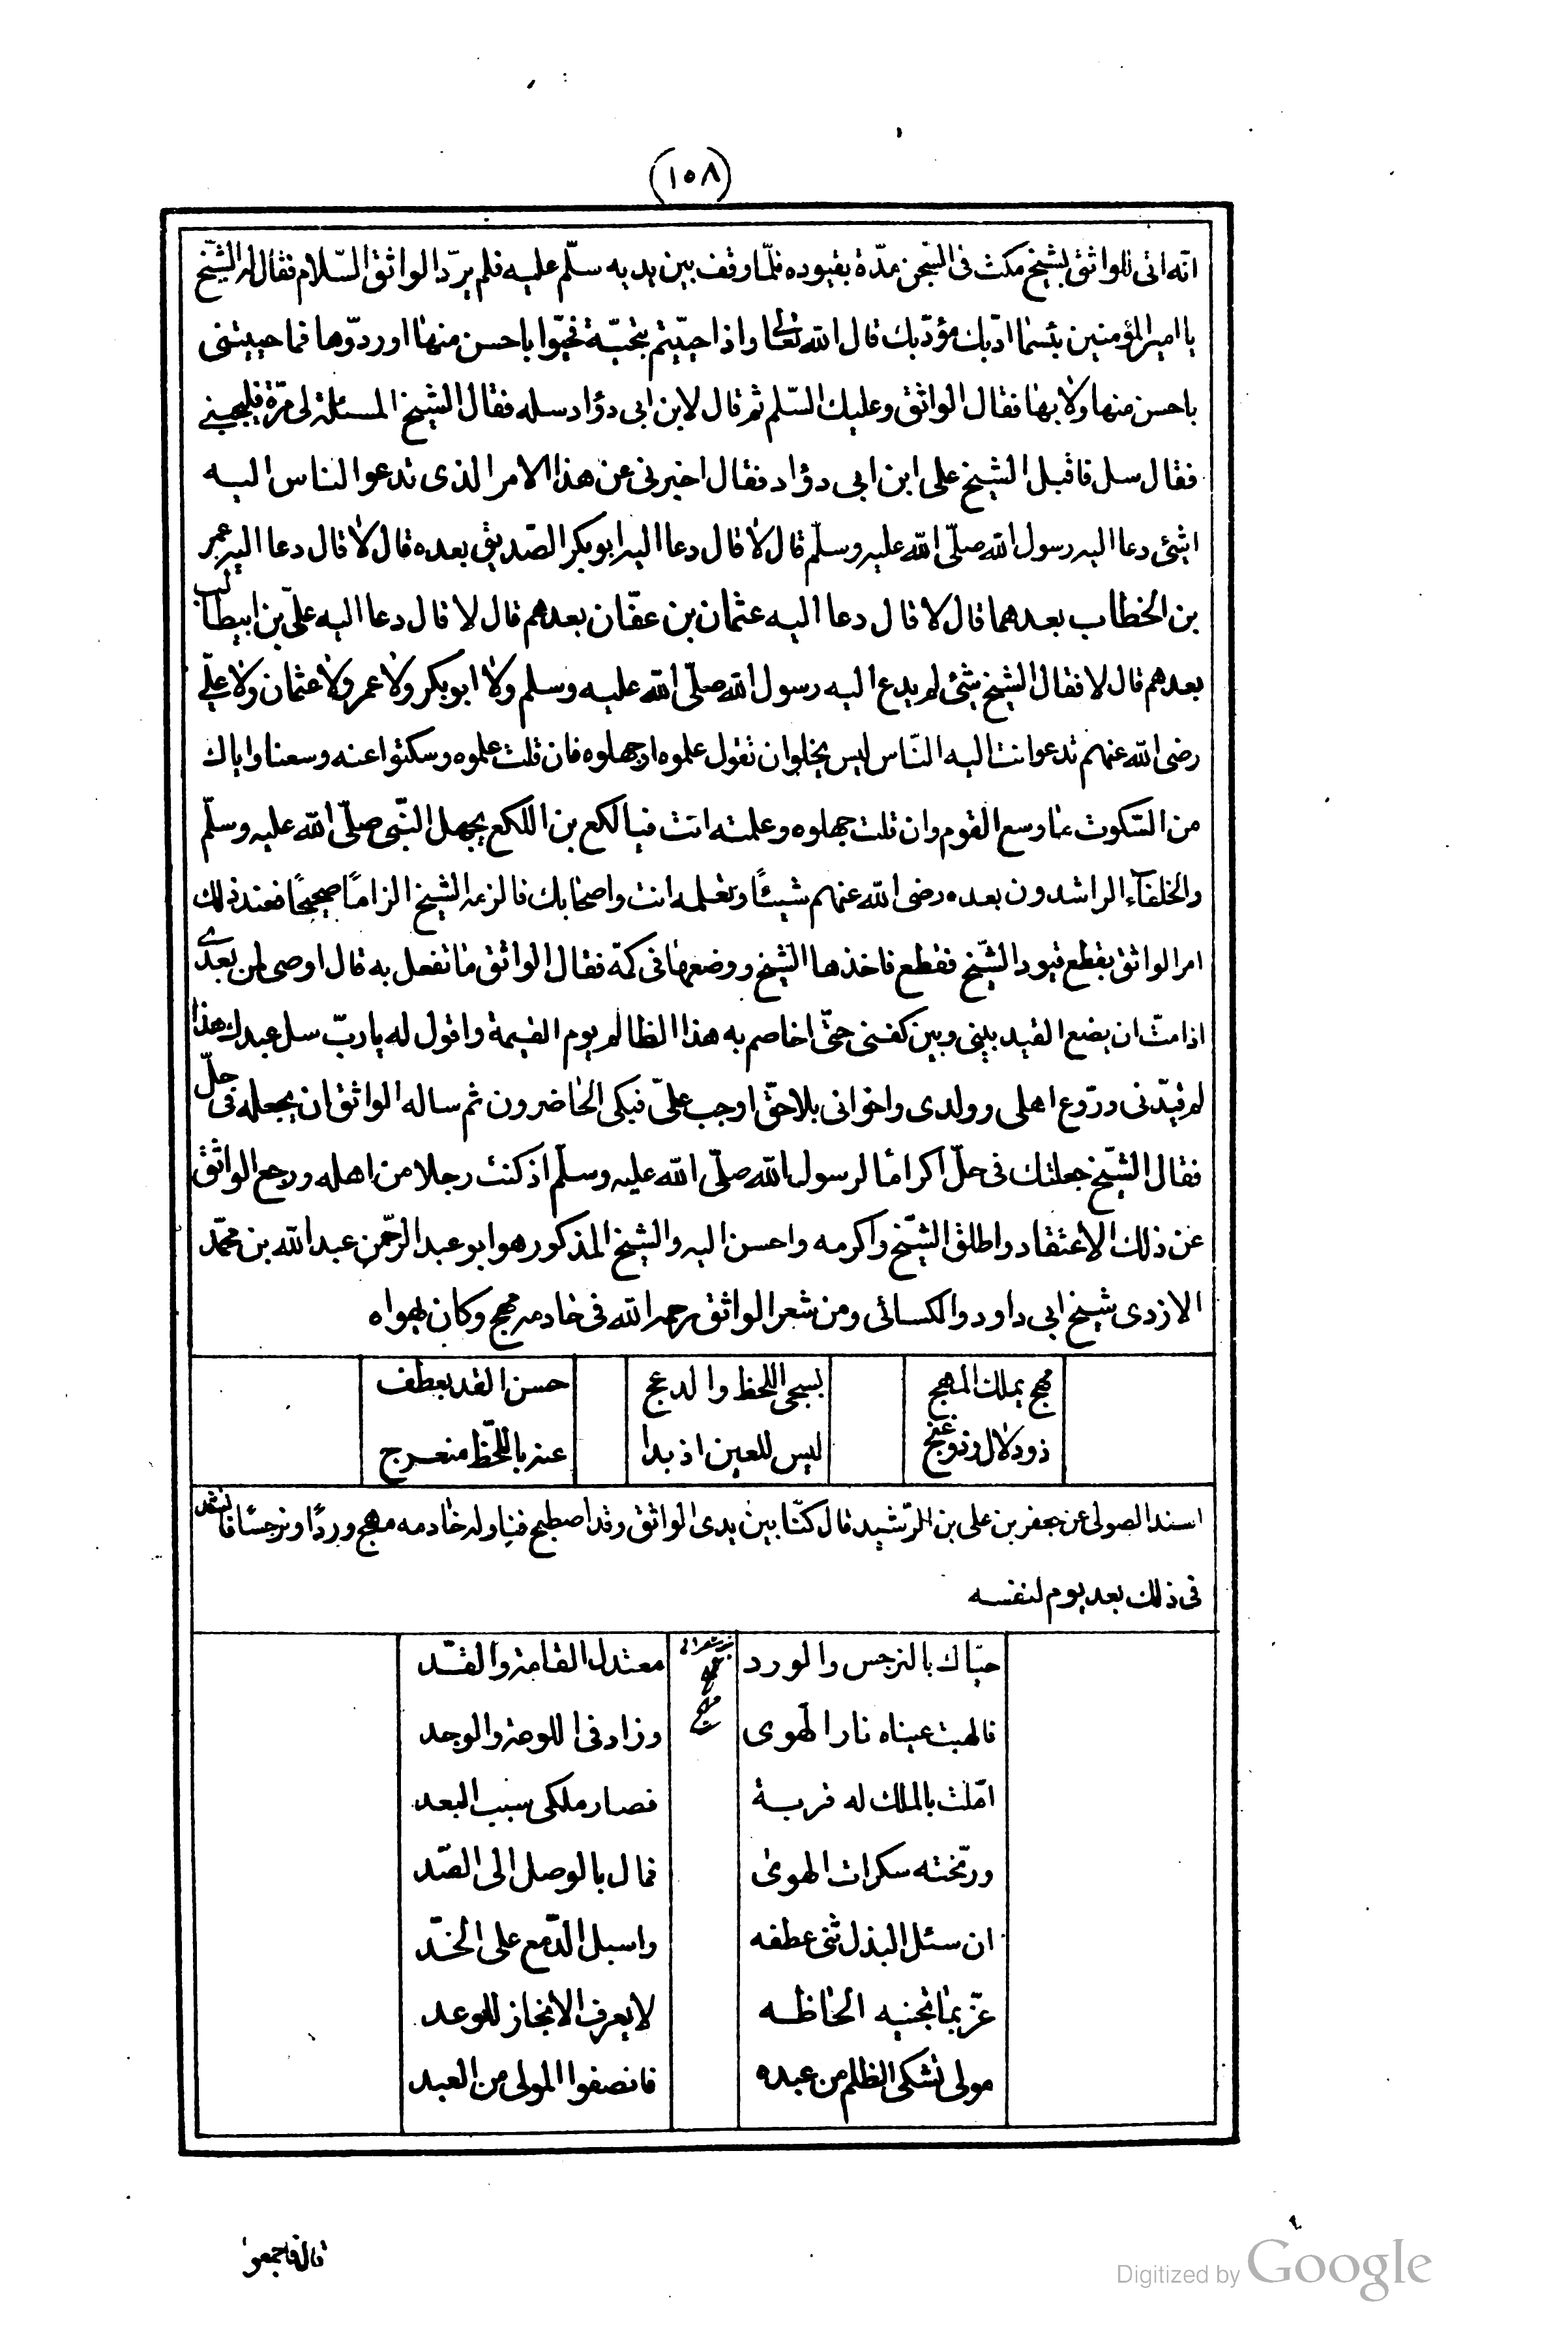 (١٥٨)
انّه اتى للواثق بشيخ مكث فى السّجن مدّة بقيوده فلمّا وقف بين يديه سلّم عليه فلم يردّ الواثق السّلام فقال له الشّيخ
يا امير المؤمنين بئسما ادّبك مؤدّبك قال الله تعالى واذا حيّيتم بتحيّة فحيّوا باحسن منها او ردّوها فما حييتنى
باحسن منها ولا بها فقال الواثق وعليك السّلم ثم قال لابن ابى دؤاد سله فقال الشيخ المسئلة لى مرّة فليجبنى
فقال سل فاقبل الشيخ على ابن ابى دؤاد فقال اخبرنى عن هذا الامر الذى تدعوا الناس اليه
اشئ دعا اليه رسول الله صلّى الله عليه وسلّم قال لا قال دعا اليه ابوبكر الصّديق بعده قال لا قال دعا اليه عمر
بن الخطاب بعدهما قال لا قال دعا اليه عثمان بن عفّان بعدهم قال لا قال دعا اليه علىّ بن ابيطالب
بعدهم قال لا فقال الشيخ شئ لم يدع اليه رسول الله صلّى الله عليه وسلم ولا ابو بكر ولا عمر ولا عثمان ولا علىّ
رضى الله عنهم تدعوا انت اليه النّاس ليس يخلو ان تقول علموه او جهلوه فان قلت علموه وسكتوا عنه وسعنا واياك
من السّكوت ما وسع القوم وان قلت جهلوه وعلمته انت فيا لكع بن اللكع يجهل النّبى صلّى الله عليه وسلّم
والخلفآء الراشدون بعده رضى الله عنهم شيئًا وتعلمه انت واصحابك فالزمه الشيخ الزامًا صحيحًا فعند ذلك
امر الواثق بقطع قيود الشّيخ فقطع فاخذها الشّيخ ووضعها فى كمّه فقال الواثق ما تفعل به قال اوصى لمن بعدى
اذا متّ ان يضع القيد بينى وبين كفنى حتّى اخاصم به هذا الظالم يوم القيمة واقول له يا ربّ سل عبدك هذا
لم قيّدنى وروّع اهلى وولدى واخوانى بلا حقّ اوجب علىّ فبكى الحاضرون ثم ساله الواثق ان يجعله فى حلّ
فقال الشّيخ جعلتك فى حلّ اكرامًا لرسول الله صلّى الله عليه وسلّم اذ كنت رجلا من اهله ورجع الواثق
عن ذلك الاعتقاد واطلق الشّيخ واكرمه واحسن اليه والشيخ المذكور هو ابو عبد الرّحمن عبد الله بن محمّد
الازدى شيخ ابى داود والكسائى ومن شعر الواثق رحمه الله فى خادمه مهج وكان يهواه
مهج يملك المهج بسجى اللحظ والدعج حسن القد يعطف
ذو دلال وذو غنج ليس للعين اذ بدا عنه باللحّظ منعرج
اسند الصولى عن جعفر بن على بن الرّشيد قال كنّا بين يدى الواثق وقد اصطبح فناوله خادمه مهج وردًا ونرجسًا فانشد
فى ذلك بعد يوم لنفسه
حيّاك بالنرجس والورد معتدل القامة والقدّ
فالهبت عيناه نار الهوى وزاد فى اللوعة والوجد
امّلت بالملك له قربة فصار ملكى سبب البعد
ورنّحته سكرات الهوى فمال بالوصل الى الصّد
ان سئل البذل ثنى عطفه واسبل الدّمع على الخدّ
عزّ بما تجنيه الحاظه لا يعرف الانجاز للوعد
مولى تشكى الظلم من عبده فانصفوا المولى من العبد
قال فاجمعو
Digitized by Google